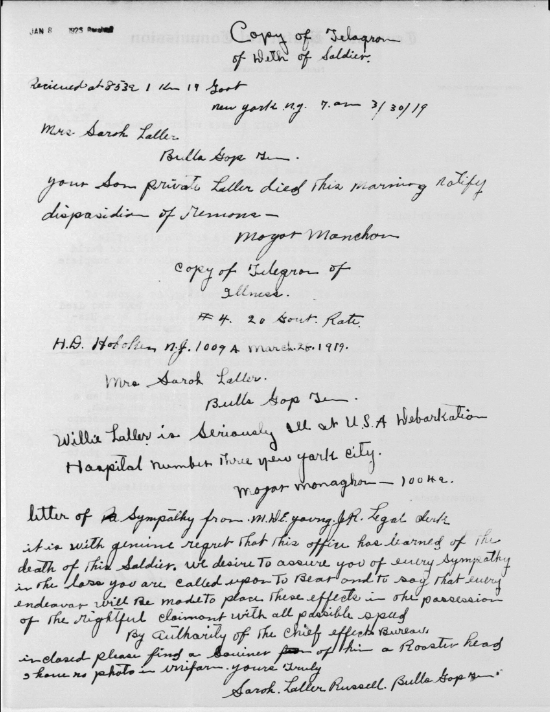 JAN 8 1925
Copy of Telagram
of Deth of Soldier.
Recieved at 853A 1 Km 19 Govt
New york ny. 7. am 3/30/19
Mrs Sarah Laller
Bulls Gap Ten.
your Son private Laller died this morning notify
disposidion of remons -
Mogor Manchon
Copy of Telegram of
Illness.
#4. 20 Govt. Rate.
H.D. Hoboken, N.J. 1009 A March. 20. 1919.
Mrs Sarah Laller.
Bulls Gap Ten.
Willie Laller is Seriously ill at U.S.A Debarkation
Hospital number three new york City.
Mogor Monaghon - 1004a.
litter of Sympathy from M.DE young. JR. Legal clerk
it is with genuine regret that this office has learned of the
death of this Soldier. we desire to assure you of every Sympathy
in the loss you are called upon to Bear and to say that every
endeavar will Be made to place these effects in the possession
of the rightful claimont with all possible speed
By Authority of the Chief effects Bureau.
inclosed please find a Souiner of him a Rooster head
I have no photo in Uniform. yours Truly
Sarah. Laller Russell. Bulls Gap Ten.